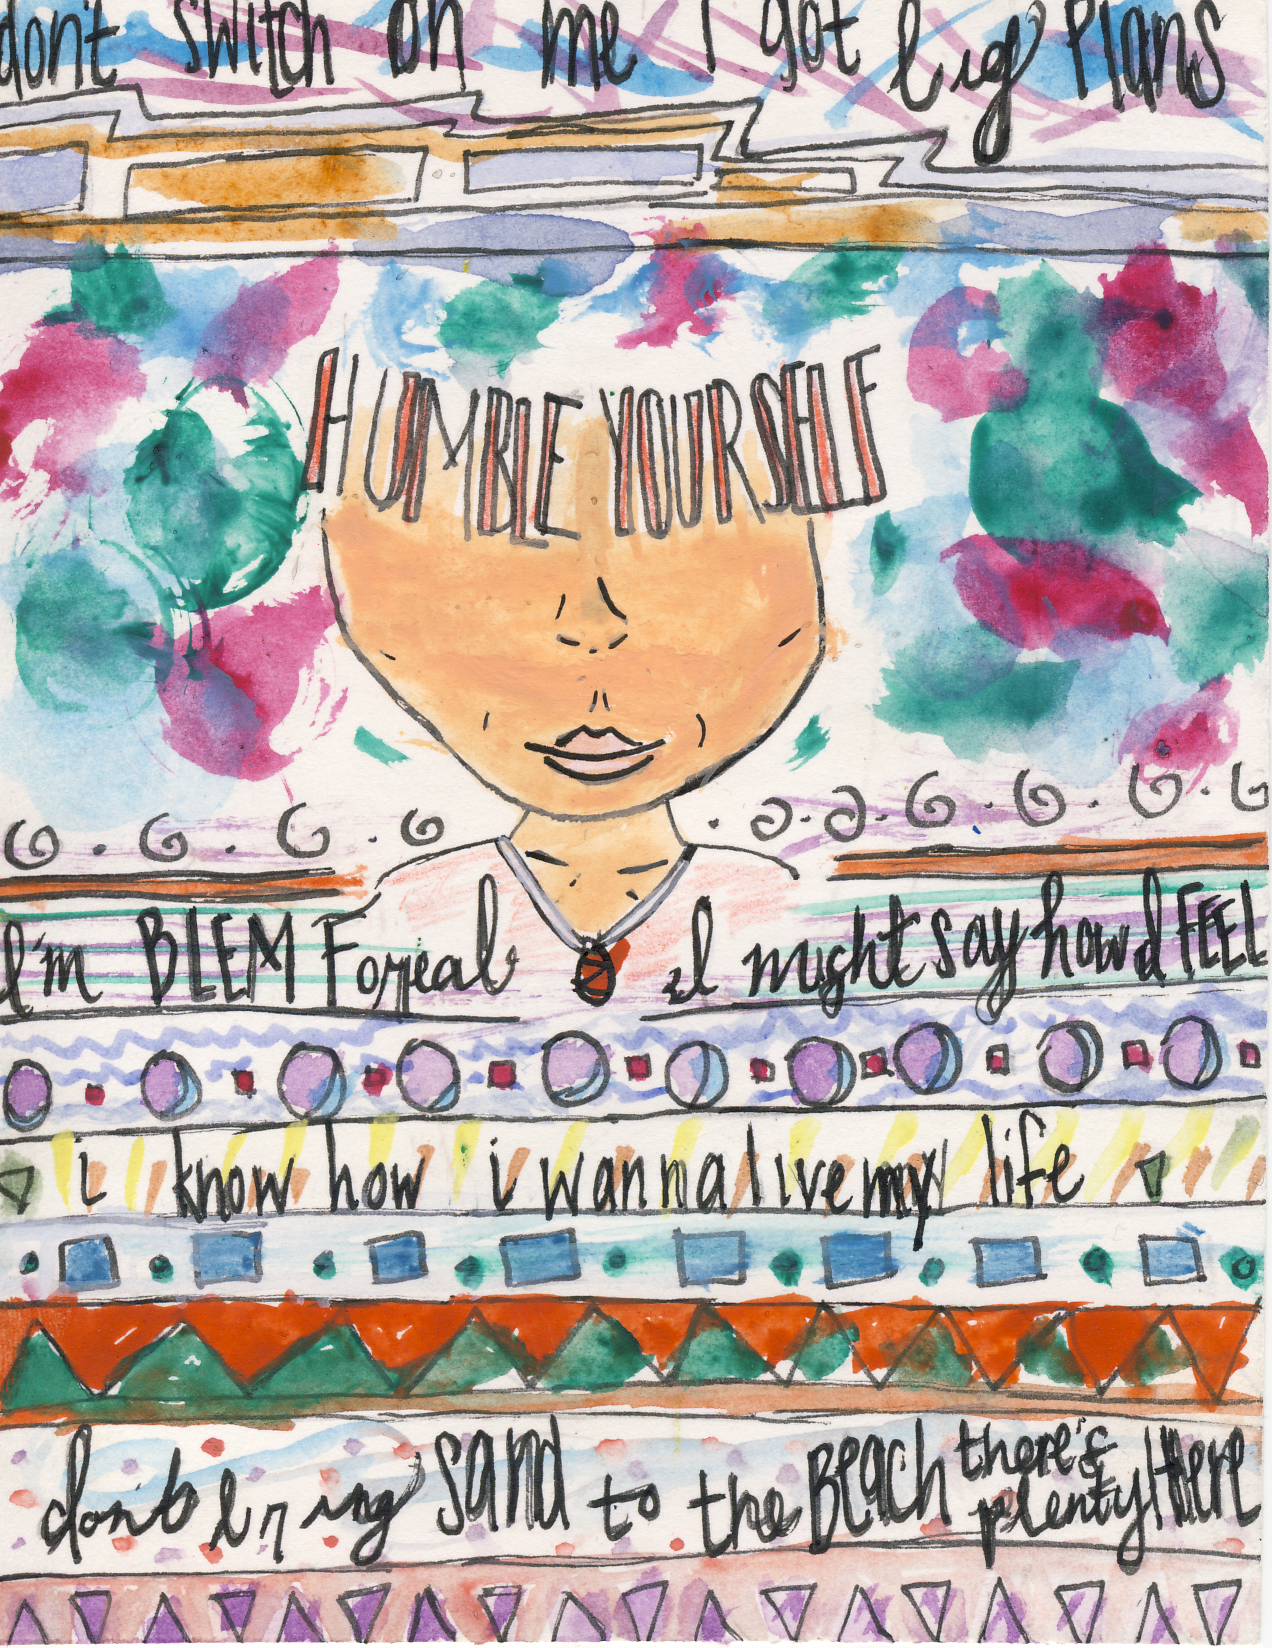 don't switch on me I got big Plans
HUMBLE YOURSELF
I'm BLEM Foreal I might say how d FEEL
i know how i wanna live my life
don't bring SAND to the BEACH there's plenty there